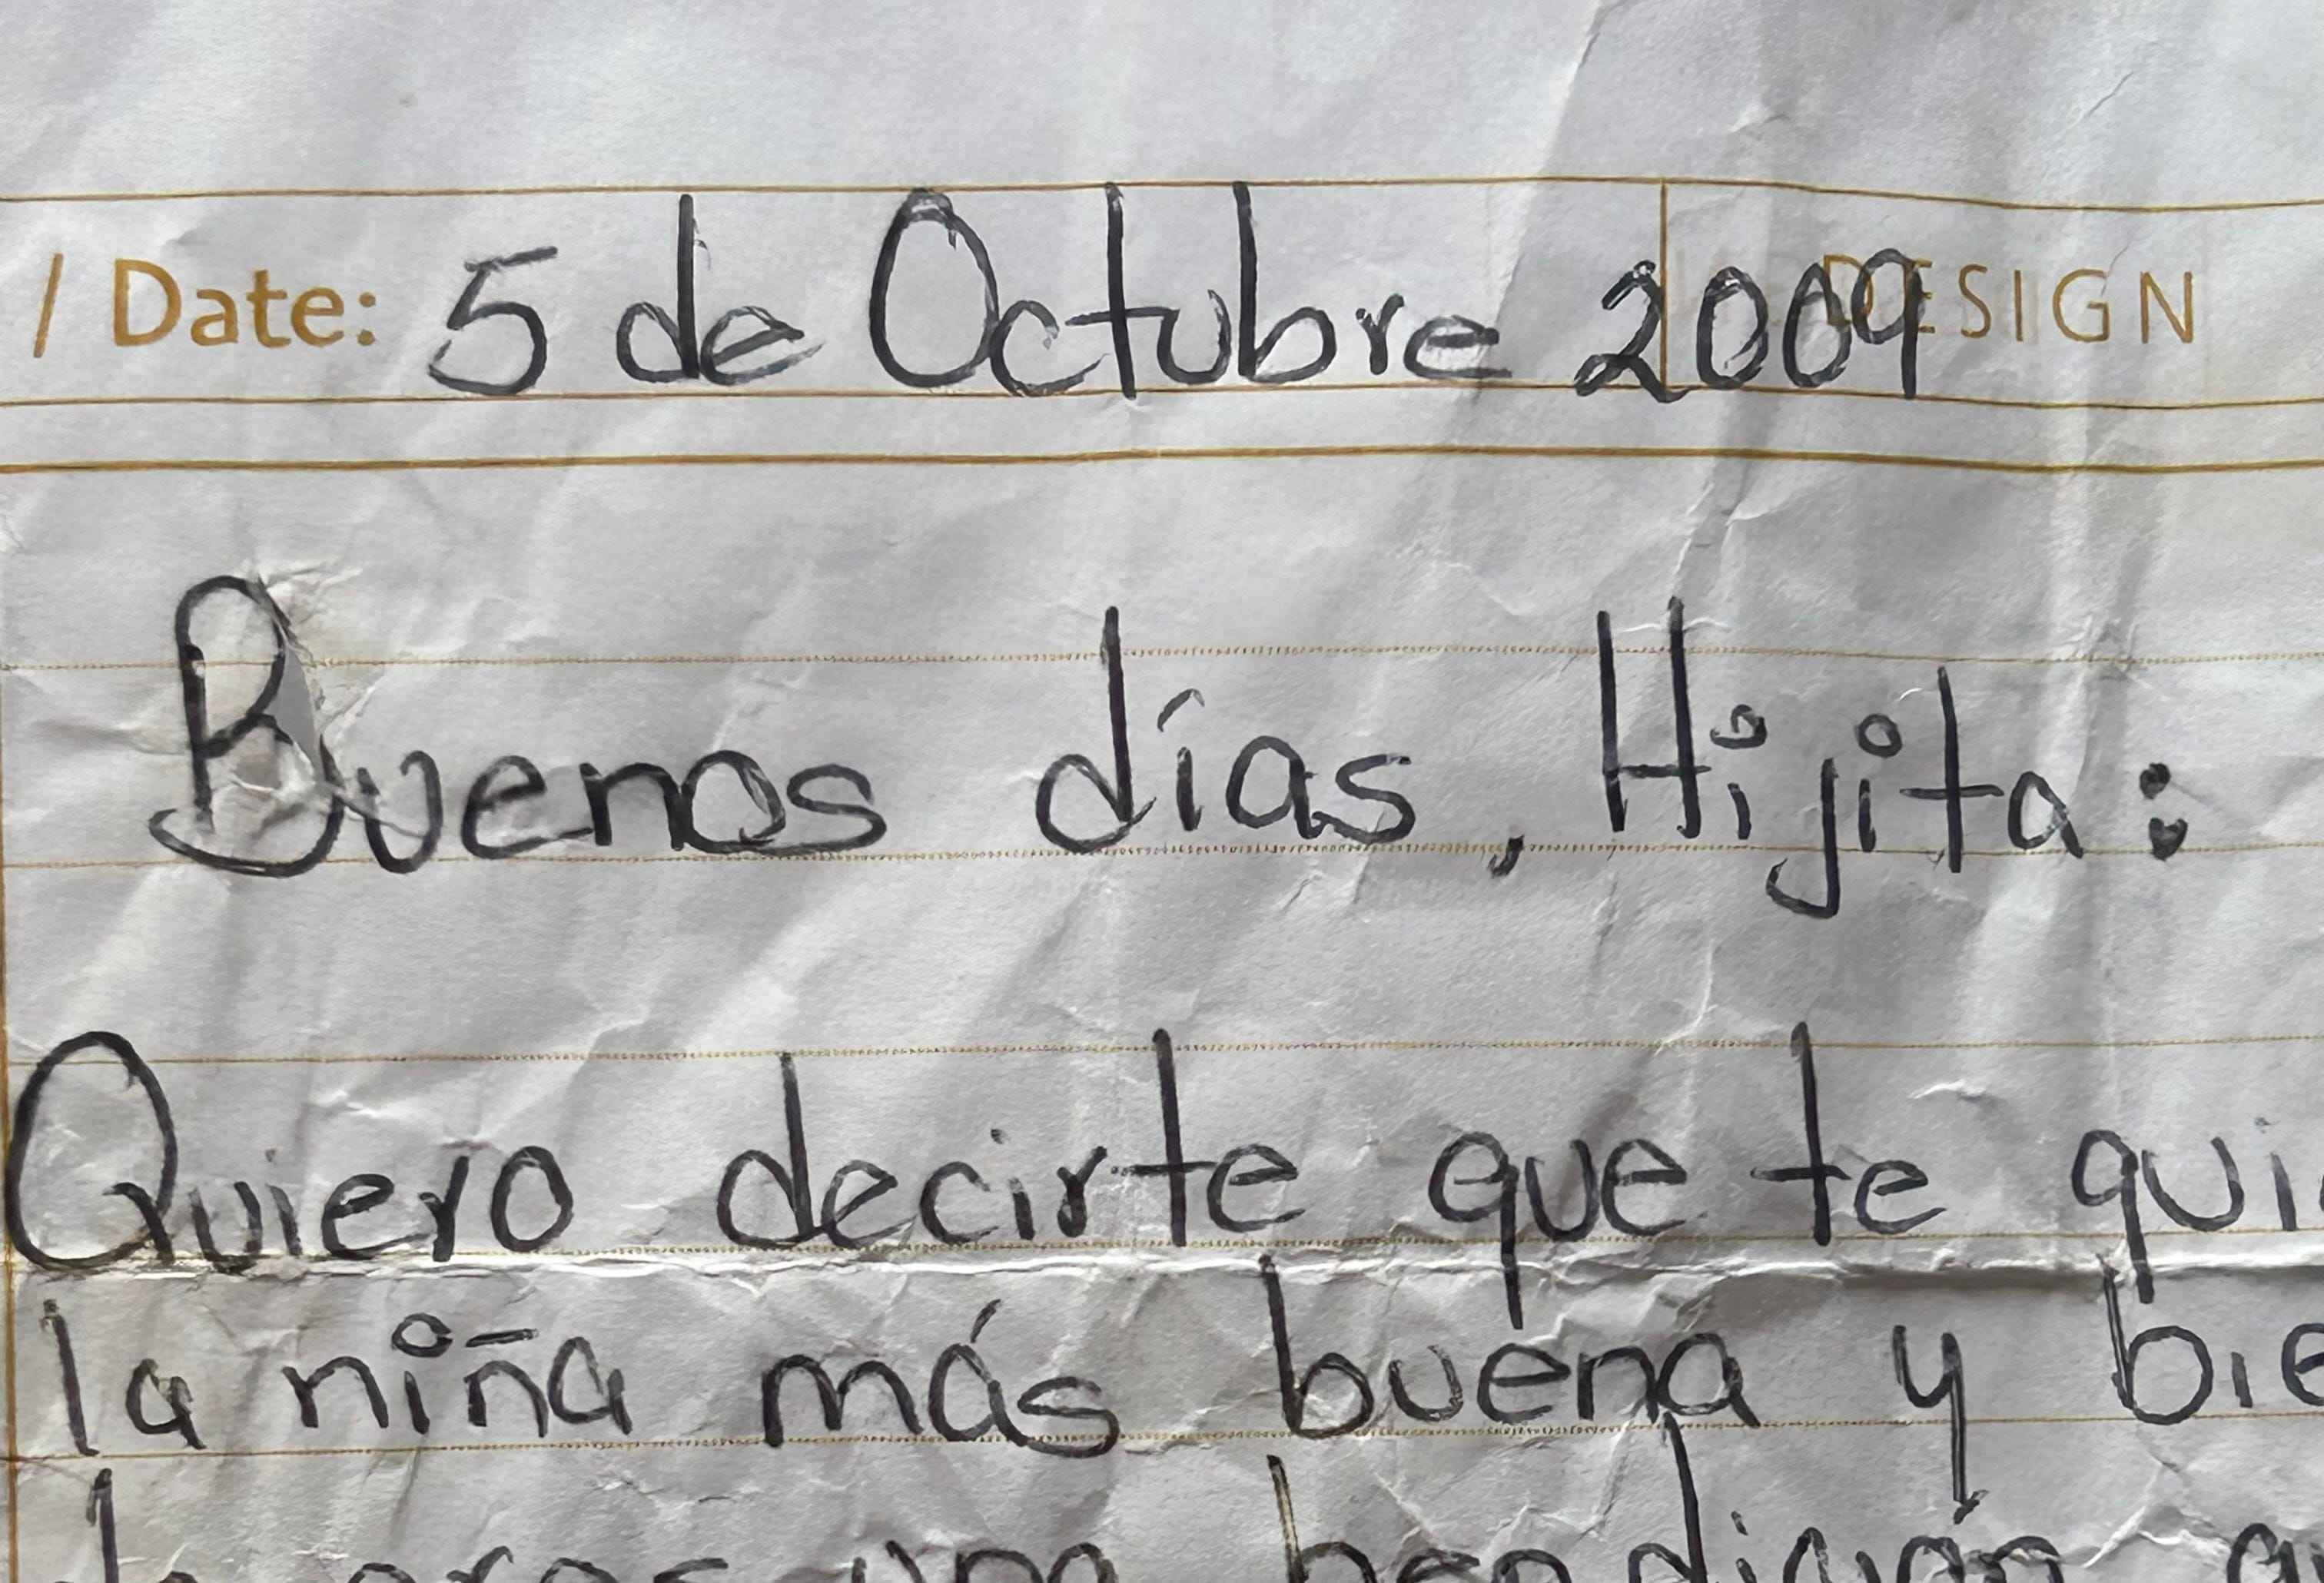 / Date: 5 de Octubre 2009 DESIGN
Buenos días, Hijita:
Quiero decirte que te qui
la niña más buena y bie
eres una bendición